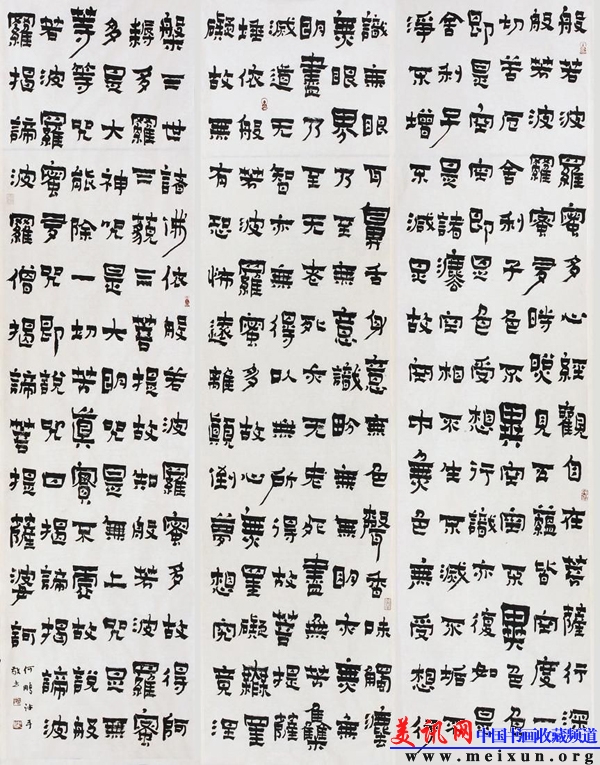 般若波羅蜜多心經觀自在菩薩行深
般若波羅蜜多時照見五蘊皆空度一
切苦厄舍利子色不異空空不異色色
即是空空即是色受想行識亦復如是
舍利子是諸法空相不生不滅不垢不
淨不增不減是故空中無色無受想行
識無眼耳鼻舌身意無色聲香味觸法
無眼界乃至無意識界無無明亦無無
明盡乃至无老死亦无老死盡無苦集
滅道无智亦無得以無所得故菩提薩
埵依般若波羅蜜多故心無罣礙無罣
礙故無有恐怖遠離顛倒夢想究竟涅
槃三世諸佛依般若波羅蜜多故得阿
耨多羅三藐三菩提故知般若波羅蜜
多是大神咒是大明咒是無上咒是無
等等咒能除一切苦真實不虛故說般
若波羅蜜多咒即說咒曰揭諦揭諦波
羅揭諦波羅僧揭諦菩提薩婆訶
美讯网 中国书画收藏频道
www.meixun.org